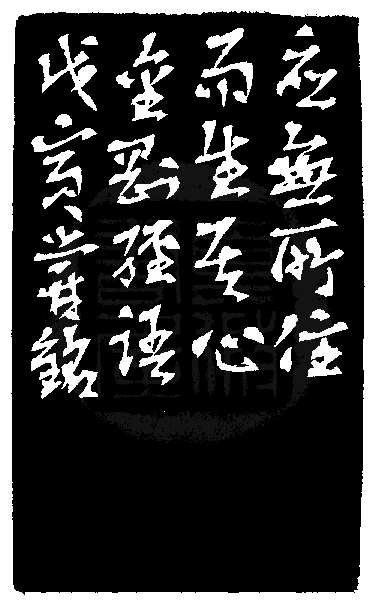 應無所住
而生其心
金剛經語
戊寅銘